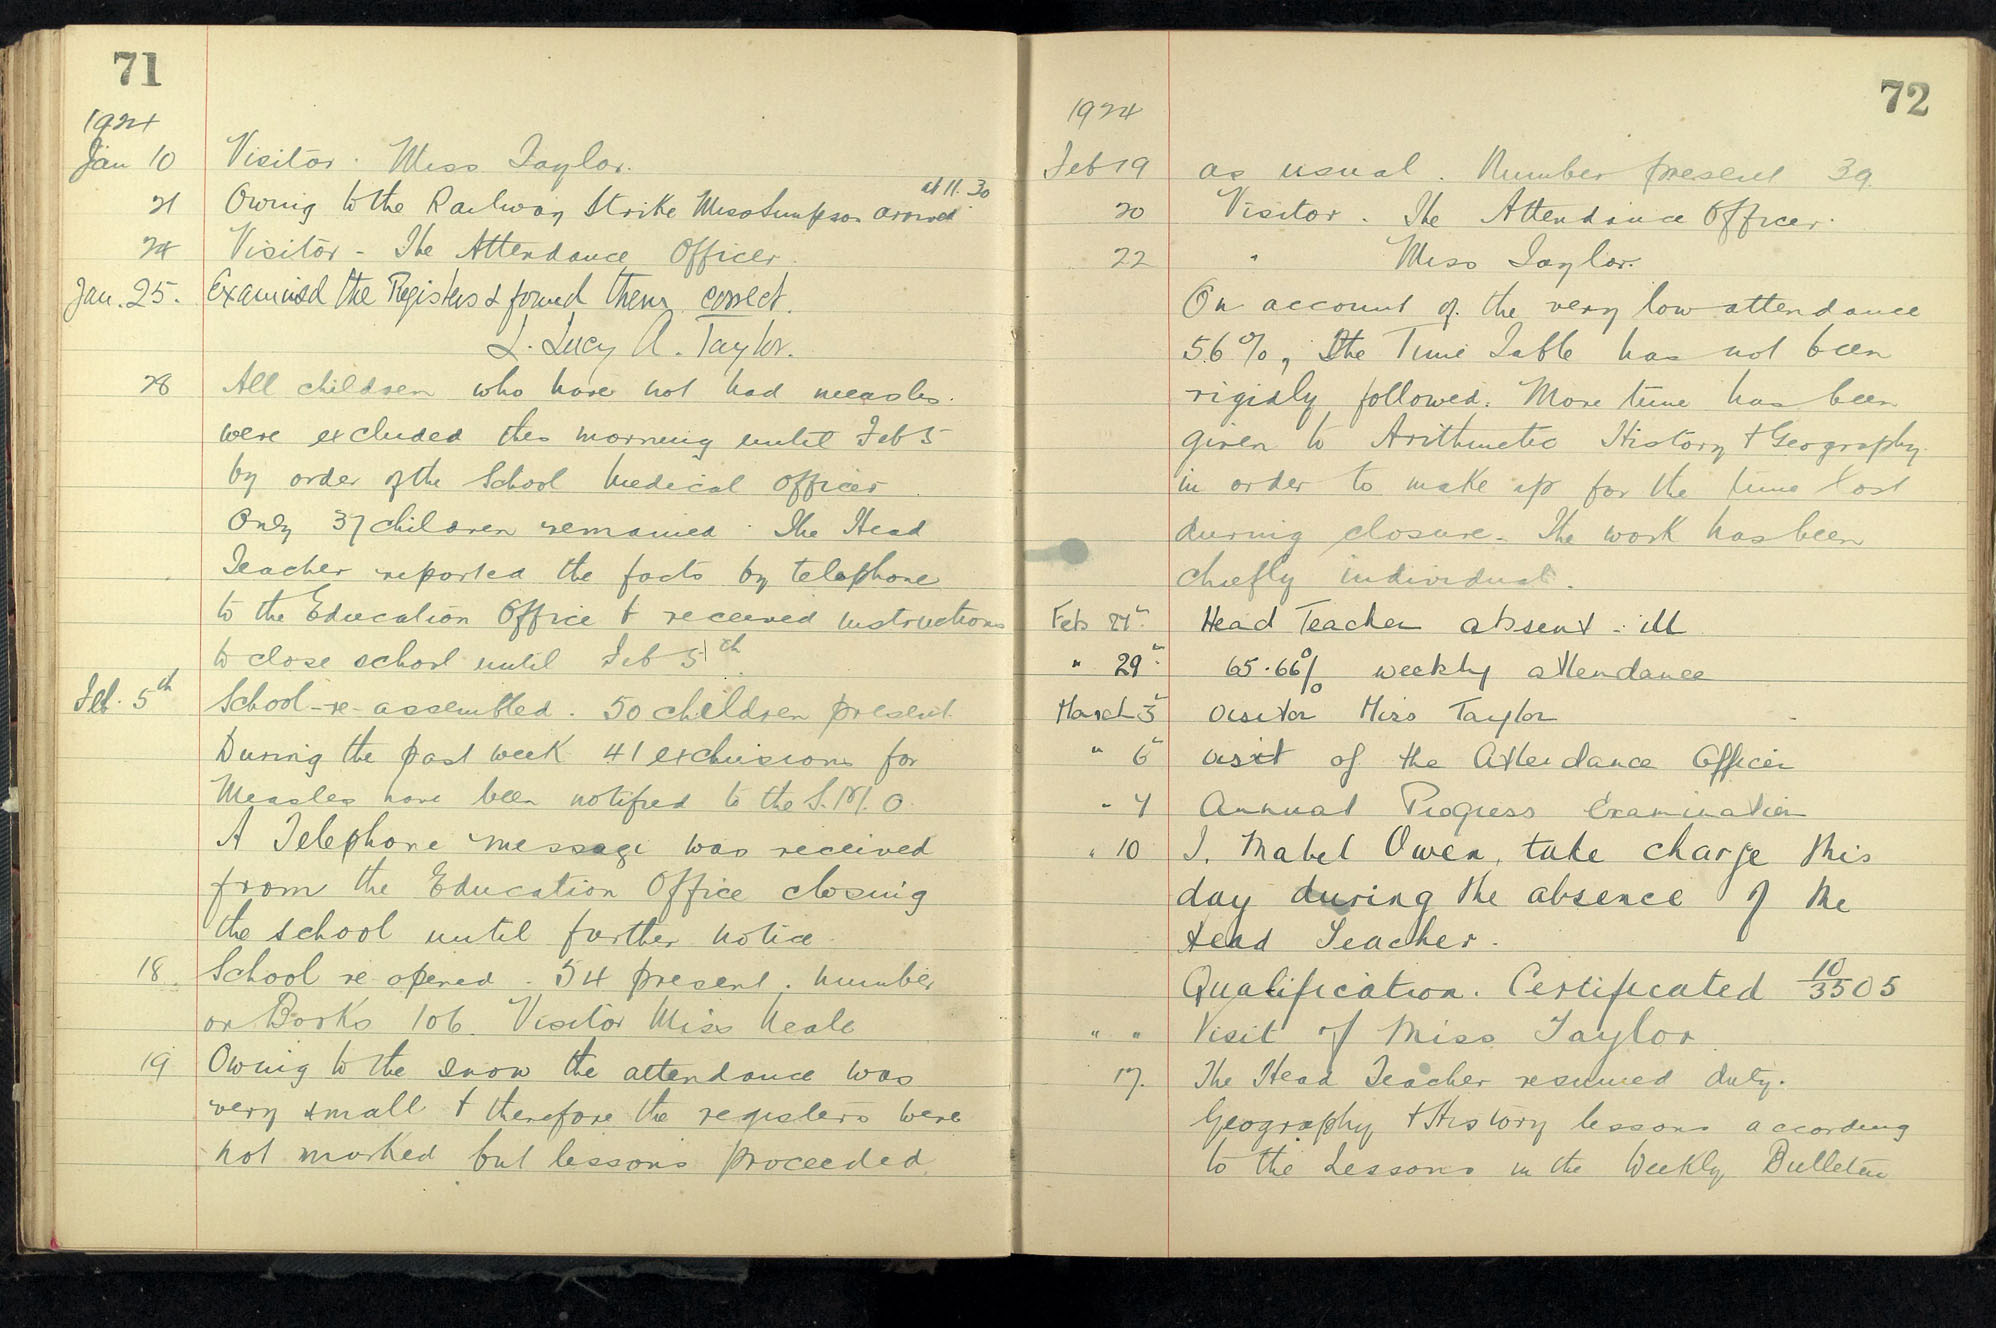 71
1924
Jan 10 Visitor. Miss Taylor.
21 Owing to the Railway Strike Miss Simpson arrived at 11.30
24 Visitor - The Attendance Officer.
Jan. 25. Examined the Registers & found them correct.
L. Lucy A. Taylor.
28 All children who have not had measles.
were excluded this morning until Feb 5
by order of the School Medical Officer.
Only 37 children remained. The Head
Teacher reported the facts by telephone
to the Education Office & received instructions
to close school until Feb 5th
Feb. 5th School-re-assembled. 50 children present.
During the past week 41 exclusions for
Measles have been notified to the S.M.O.
A Telephone message was received
from the Education Office closing
the school until further notice.
18. School re opened. 54 present. Number
on Books 106. Visitor Miss Neale
19 Owing to the snow the attendance was
very small & therefore the registers were
not marked but lessons proceeded
72
1924
Feb 19 as usual. Number present 39.
20 Visitor. The Attendance Officer.
22 " Miss Taylor.
On account of the very low attendance
56%, the Time Table has not been
rigidly followed. More time has been
given to Arithmetic History & Geography
in order to make up for the time lost
during closure. The work has been
chiefly individual.
Feb Head Teacher absent - ill
" 29th 65.66% weekly attendance
March 3 visitor Miss Taylor
" 6 visit of the Attendance Officer
" 7 Annual Progress Examination
" 10 I, Mabel Owen, take charge this
day during the absence of the
Head Teacher.
Qualification. Certificated 10/3505
" " Visit of Miss Taylor
17. The Head Teacher resumed duty.
Geography & History lessons according
to the Lessons in the Weekly Bulletin